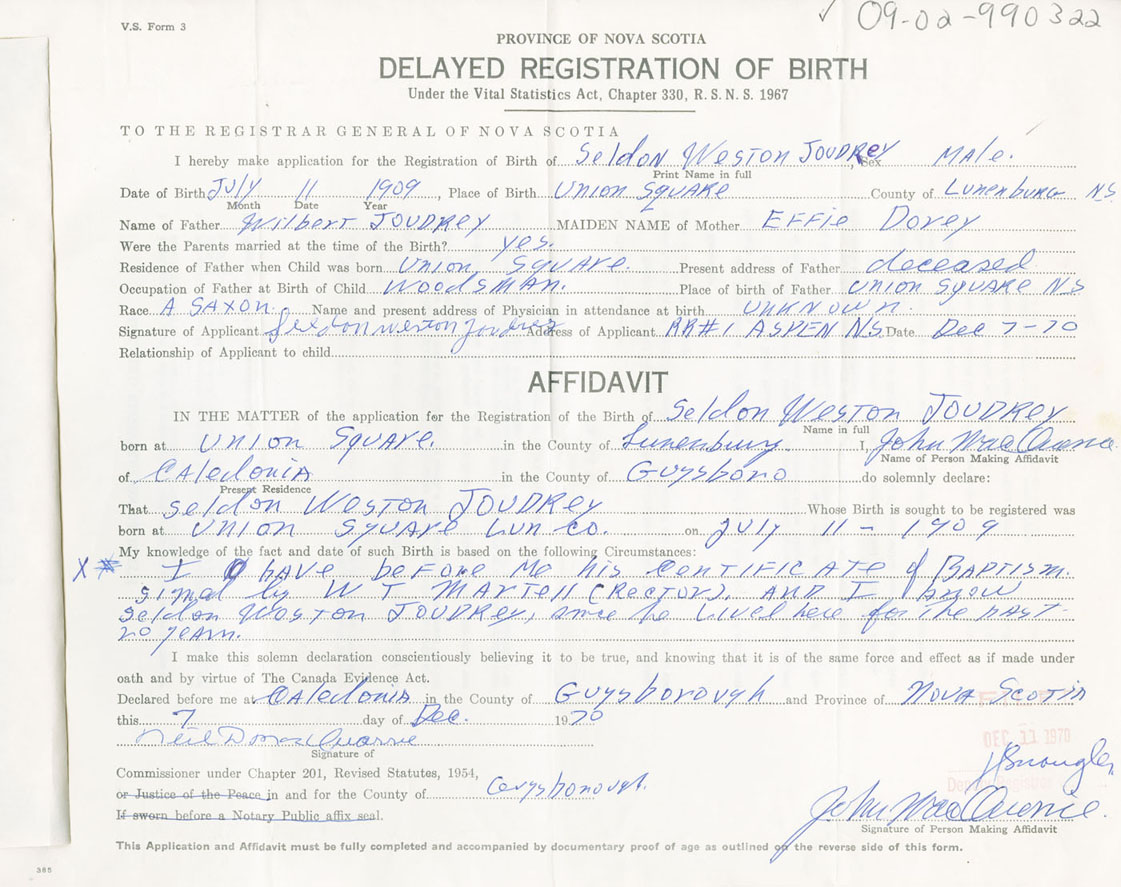 V.S. Form 3
✓ 09-02-990322
PROVINCE OF NOVA SCOTIA
DELAYED REGISTRATION OF BIRTH
Under the Vital Statistics Act, Chapter 330, R.S.N.S. 1967
TO THE REGISTRAR GENERAL OF NOVA SCOTIA
I hereby make application for the Registration of Birth of Seldon Weston JOUDRey, Sex Male.
Print Name in full
Date of Birth July 11 1909, Place of Birth Union Square County of Lunenburg NS
Month Date Year
Name of Father Wilbert JOUDREY MAIDEN NAME of Mother EFFie Dorey
Were the Parents married at the time of the Birth? yes.
Residence of Father when Child was born Union Square. Present address of Father deceased
Occupation of Father at Birth of Child Woodsman. Place of birth of Father Union Square NS
Race A SAXON. Name and present address of Physician in attendance at birth UNKNOWN.
Signature of Applicant Seldon Weston Joudrey Address of Applicant RR#1 ASPEN NS. Date Dec 7-70
Relationship of Applicant to child
AFFIDAVIT
IN THE MATTER of the application for the Registration of the Birth of Seldon Weston JOUDREY
Name in full
born at Union Square. in the County of Lunenburg. I, John Mac
Name of Person Making Affidavit
of CAledoniA in the County of Guysboro do solemnly declare:
Present Residence
That Seldon Weston JOUDREY Whose Birth is sought to be registered was
born at Union Square Lun Co. on July 11-1909
My knowledge of the fact and date of such Birth is based on the following Circumstances:
X # I have before me his CERTIFICATE of BAPTISM.
signed by W T MARTell (RecTOR). AND I know
Seldon Weston JOUDREY, since he lived here for the past
20 years.
I make this solemn declaration conscientiously believing it to be true, and knowing that it is of the same force and effect as if made under
oath and by virtue of The Canada Evidence Act.
Declared before me at CAledoniA in the County of Guysborough and Province of Nova Scotia
this 7 day of Dec. 1970
Neil D
Signature of
Commissioner under Chapter 201, Revised Statutes, 1954,
or Justice of the Peace in and for the County of Guysborough.
If sworn before a Notary Public affix seal.
DEC 11 1970
Deputy Registrar
John Mac
Signature of Person Making Affidavit
This Application and Affidavit must be fully completed and accompanied by documentary proof of age as outlined on the reverse side of this form.
385